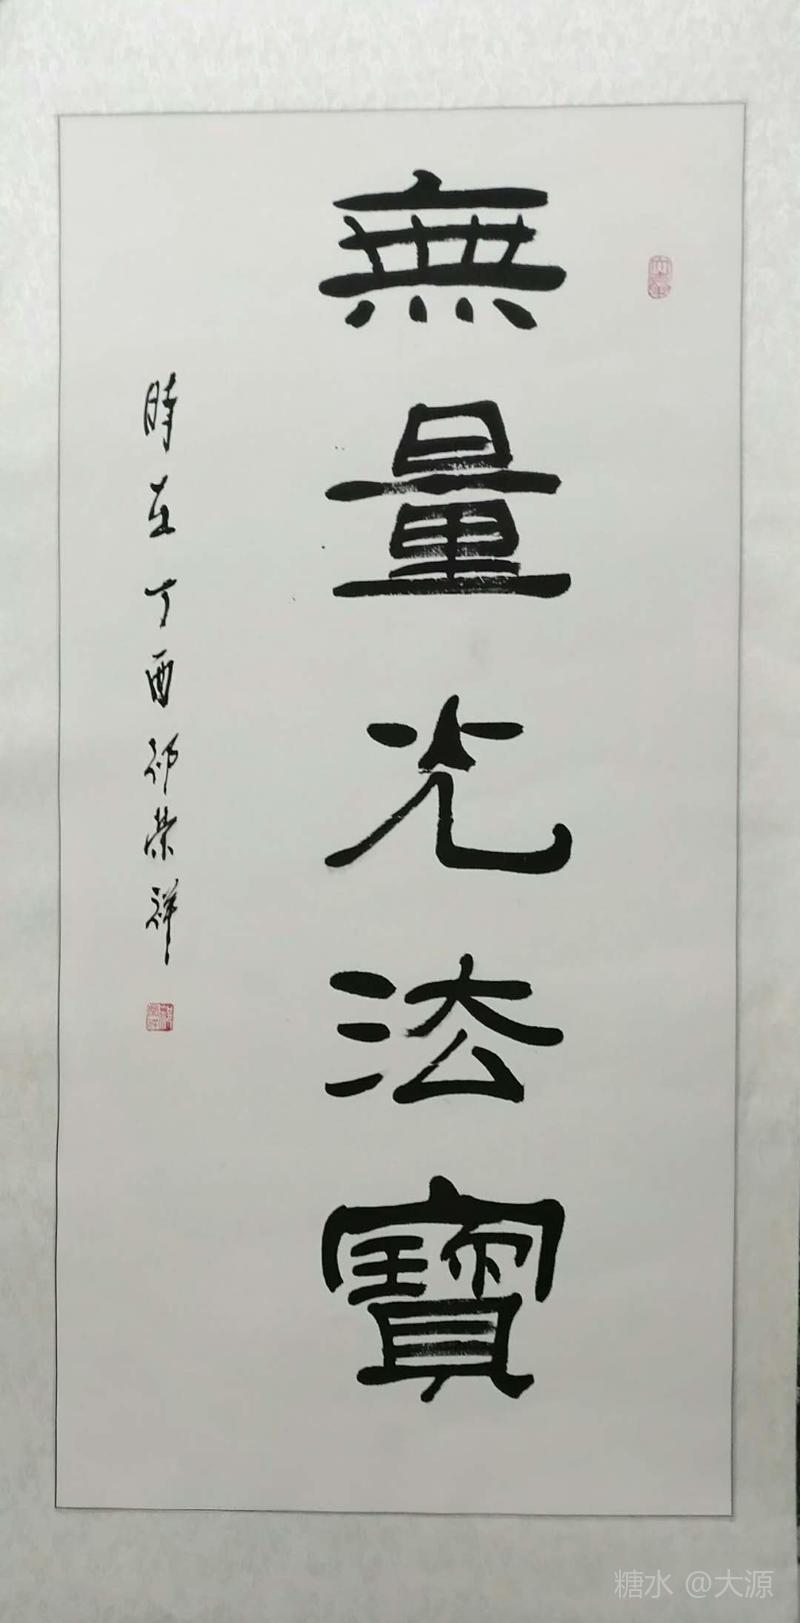 無量光法寶
時在丁酉祁榮祥
糖水 @大源